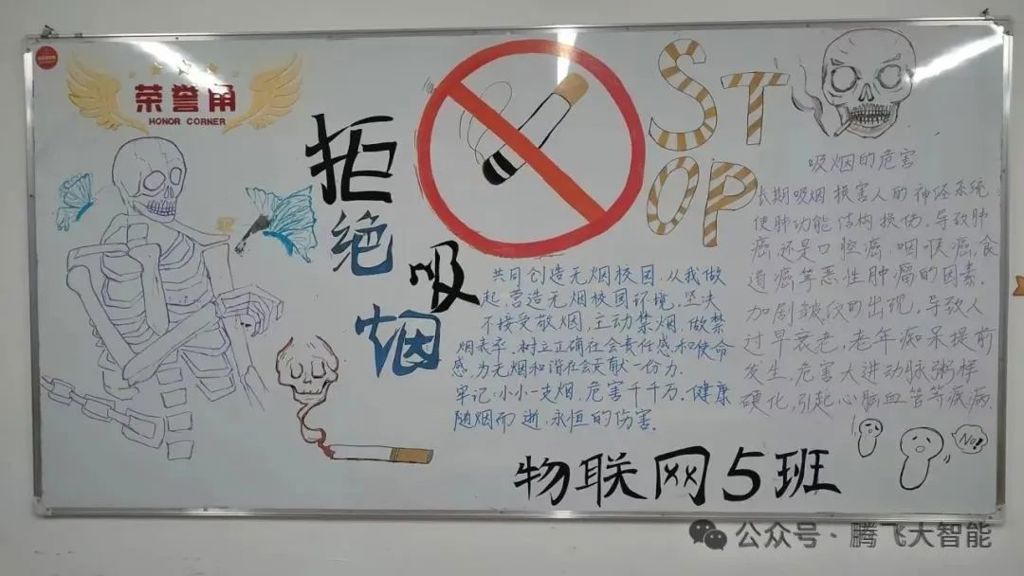 荣誉角
HONOR CORNER
拒
绝
吸
烟
ST
OP
共同创造无烟校园,从我做
起,营造无烟校园环境,坚决
不接受敬烟,主动禁烟,做禁
烟表率.树立正确社会责任感和使命
感,为无烟和谐社会贡献一份力.
牢记,小小一支烟,危害千千万.健康
随烟而逝,永恒的伤害.
吸烟的危害
长期吸烟损害人的神经系统
使肺功能结构损伤.导致肺
癌还是口腔癌、咽喉癌,食
道癌等恶性肿瘤的因素.
加剧皱纹的出现,导致人
过早衰老,老年痴呆提前
发生,危害大进动脉粥样
硬化,引起心脑血管等疾病.
No!
物联网5班
公众号·腾飞大智能